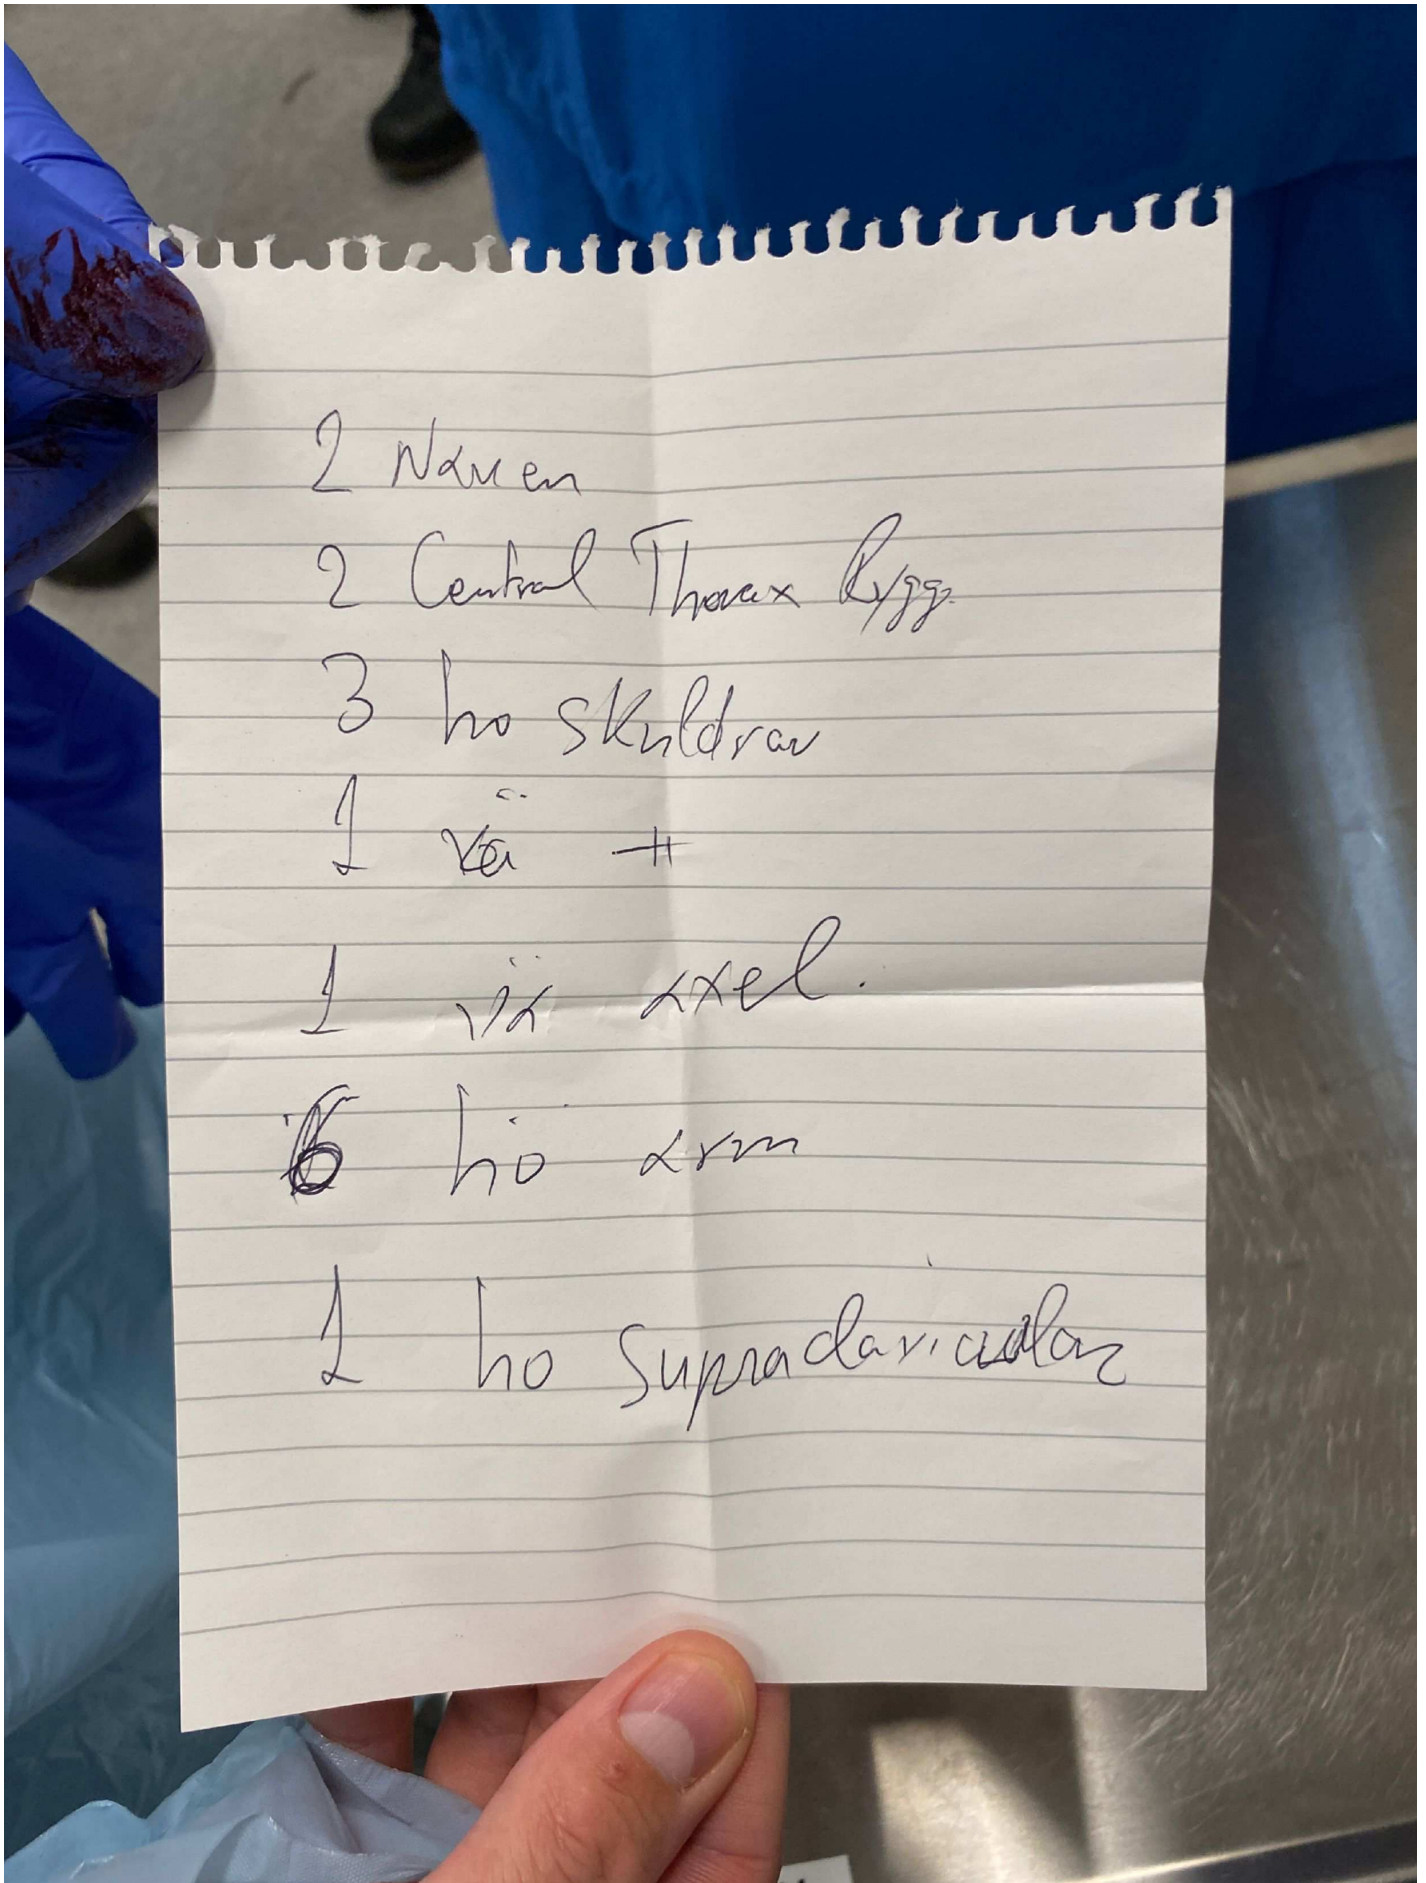 2 Nacken
2 Central Thorax Rygg
3 hö skuldran
1 vä -11-
1 vä axel.
6 hö arm
1 hö supraclavicular